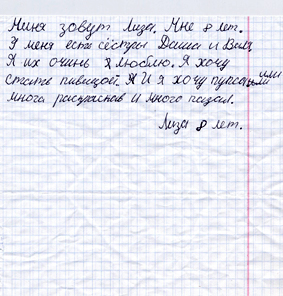 Миня зовут Лиза. Мне 8 лет.
У меня есть сёстры Даша и
Я их очинь люблю. Я хочу
стать певицой. И я хочу или
много раскрасов и много пазал.
Лиза 8 лет.